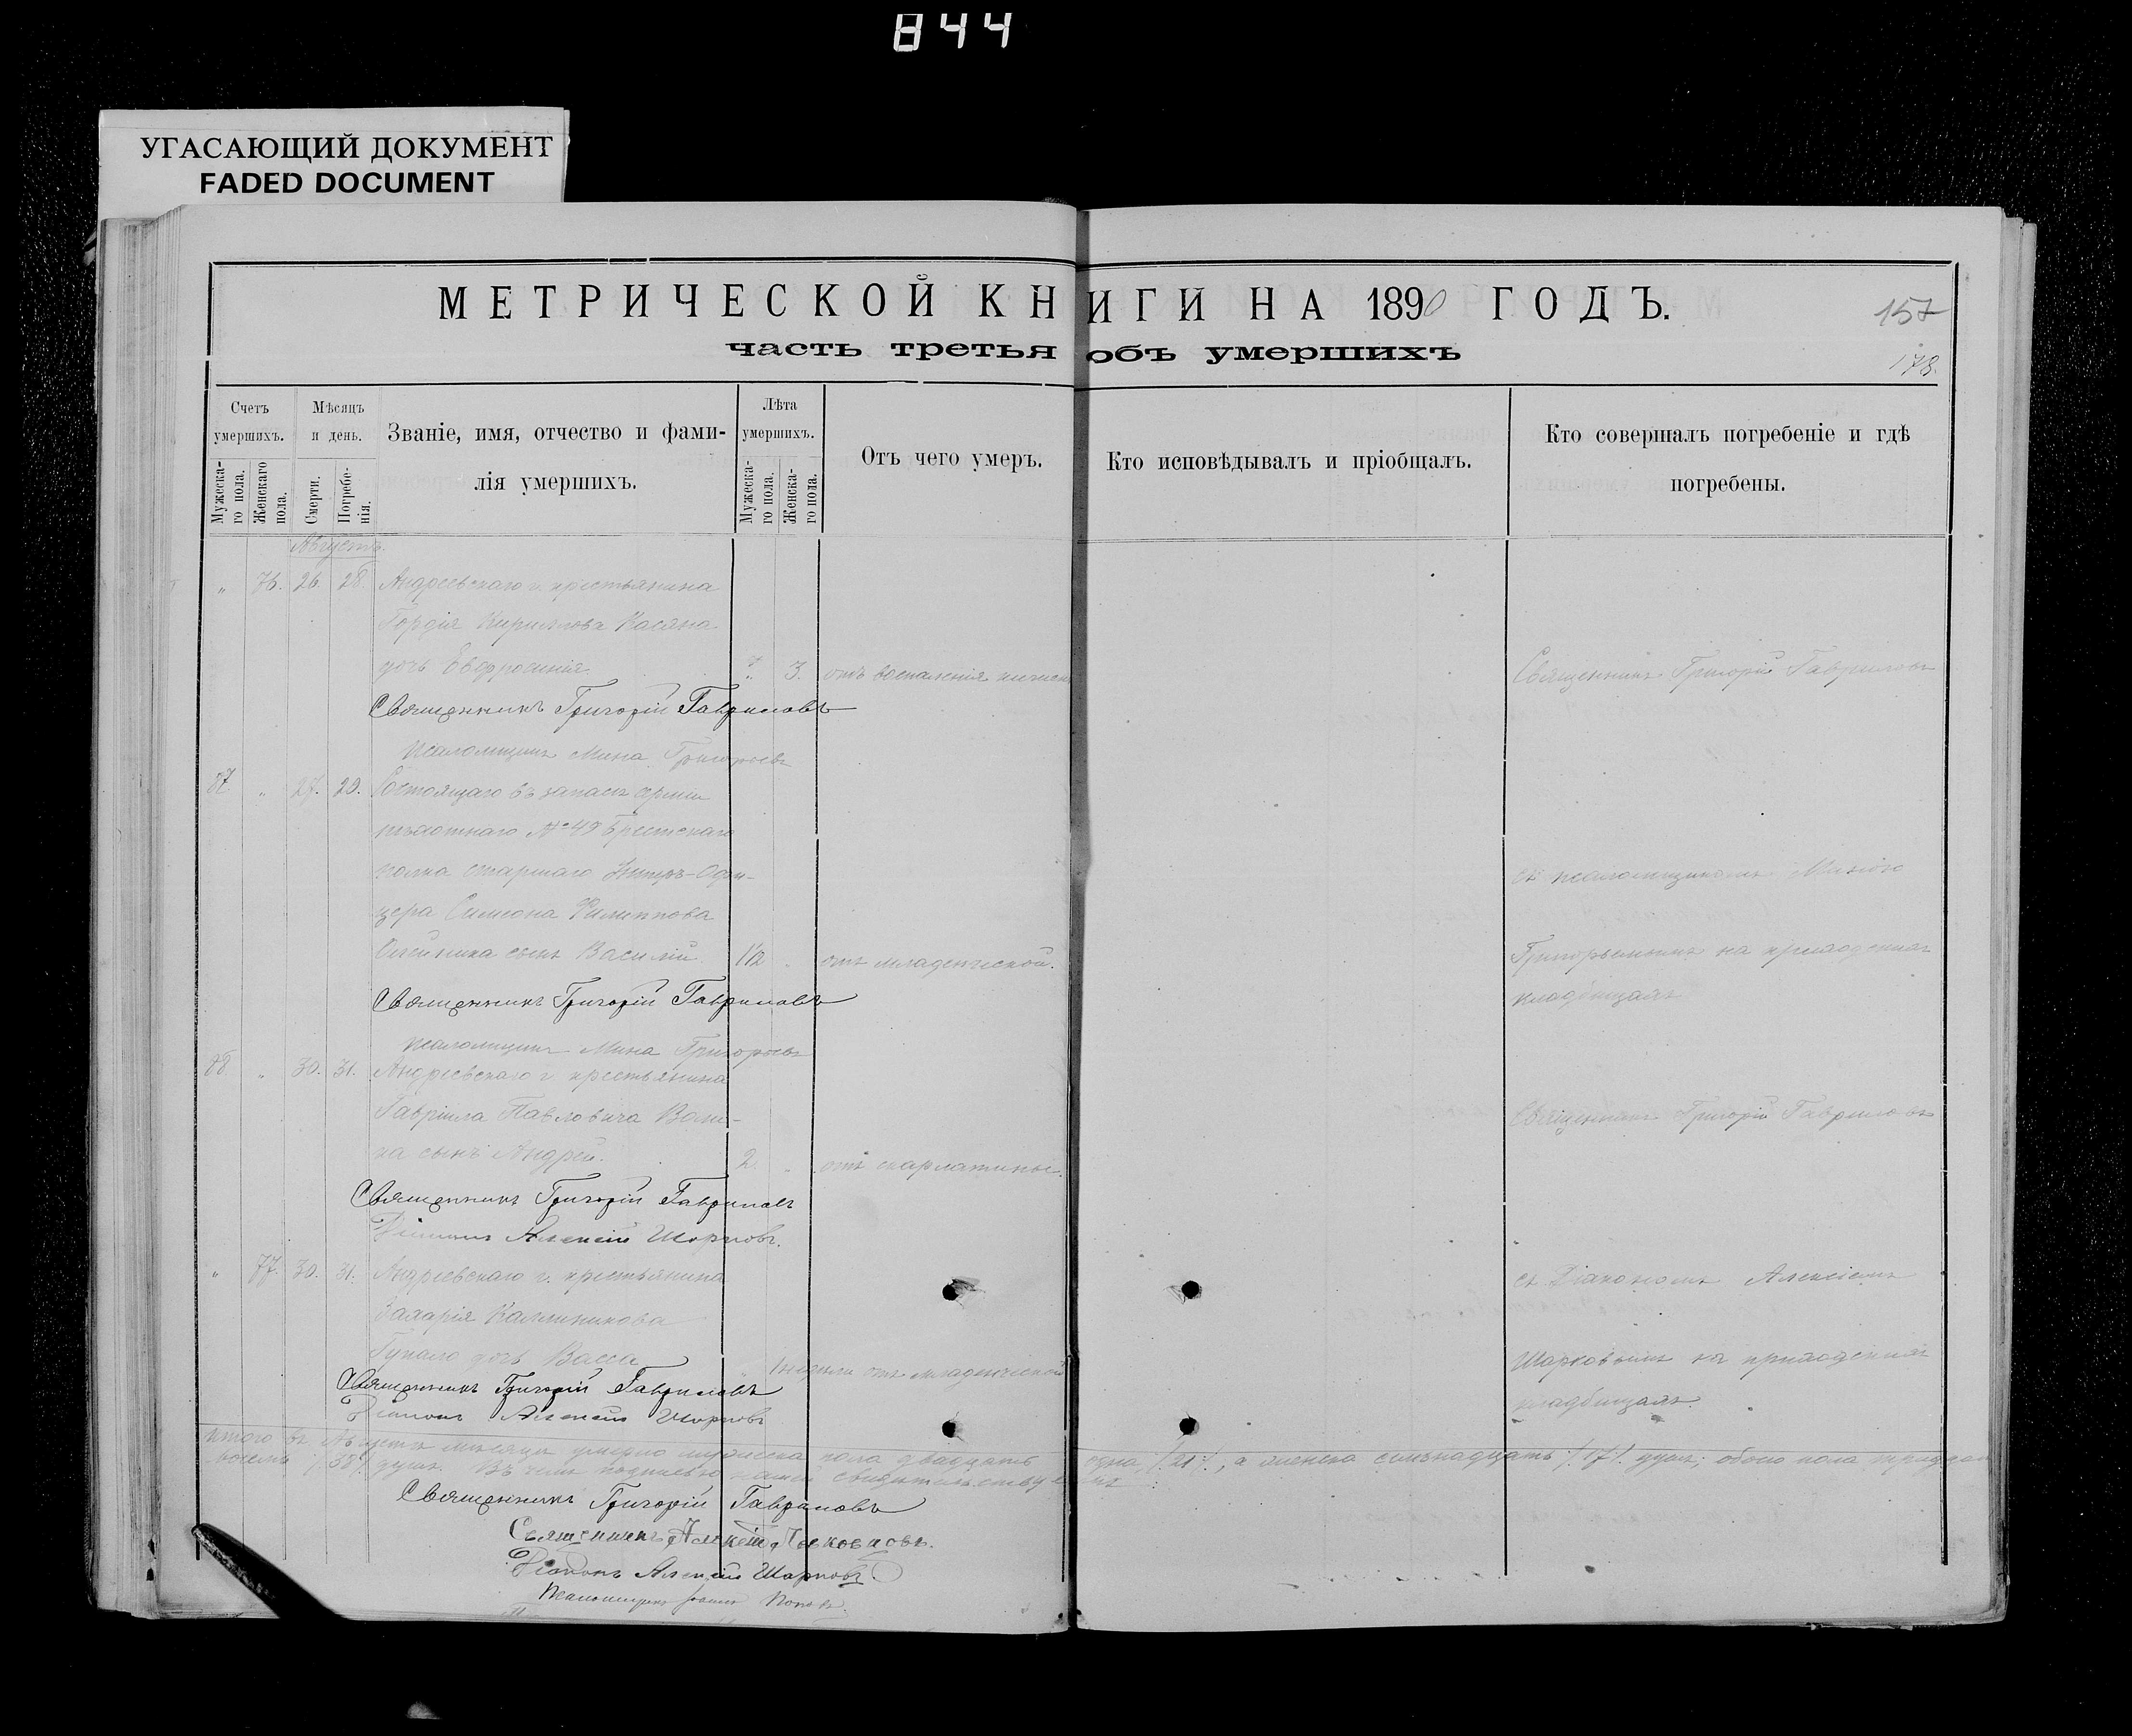 844
УГАСАЮЩИЙ ДОКУМЕНТ
FADED DOCUMENT
МЕТРИЧЕСКОЙ КНИГИ НА 1890 ГОДЪ.
157
часть третья объ умершихъ
178.
Счетъ умершихъ.
Мужеска-го пола.
Женскаго пола.
Мѣсяцъ и день.
Смерти.
Погребе-нія.
Званіе, имя, отчество и фами-
лія умершихъ.
Лѣта умершихъ.
Мужеска-го пола.
Женска-го пола.
Отъ чего умеръ.
Кто исповѣдывалъ и пріобщалъ.
Кто совершалъ погребеніе и гдѣ
погребены.
Августъ.
" 76. 26. 28. Андреевскаго г. крестьянина
Гордія Кириллова Касяна
дочь Евфросинія " 3. отъ воспаленія Священникъ Григорій Гавриловъ
Священникъ Григорій Гавриловъ
Псаломщикъ Мина Григорьевъ
87 " 27. 29. Состоящаго въ запасѣ арміи
пѣхотнаго № 49 Брестскаго
полка старшаго Унтеръ-Офи-
съ псаломщикомъ Миною
цера Симеона Филиппова
Олейника сынъ Василій 1/2 " отъ младенческой.
Григорьевымъ на приходскомъ
кладбищахъ
Священникъ Григорій Гавриловъ
псаломщикъ Мина Григорьевъ
88 " 30. 31. Андреевскаго г. крестьянина
Гавріила Павловича
Священникъ Григорій Гавриловъ
ка сынъ Андрей. 2 " отъ скарлатины.
Священникъ Григорій Гавриловъ
Діаконъ Алексій Шорковъ.
" 77. 30. 31. Андреевскаго г. крестьянина
съ Діакономъ Алексіемъ
Захарія Каллиникова
дочь Васса 1 недѣли отъ младенческой
Шорковымъ на приходскихъ
кладбищахъ.
Священникъ Григорій Гавриловъ
Діаконъ Алексій Шорковъ
Итого въ Августѣ мѣсяцѣ умерло мужеска пола двадцать одна /21/, а женска семьнадцать /17/ душъ; обоего пола тридцать
восемь /38/ душъ. Въ чемъ подписью нашею свидѣтельствуемъ
Священникъ Григорій Гавриловъ
Священникъ Алексій
Діаконъ Алексій Шорковъ
Псаломщикъ Поповъ.